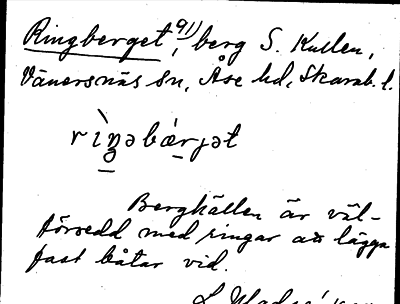 Ringberget 91), berg S. Kullen,
Vänersnäs sn, Åse hd, Skarab. l.
rìŋəbærjət
Berghällen är väl-
försedd med ringar att lägga
fast båtar vid.